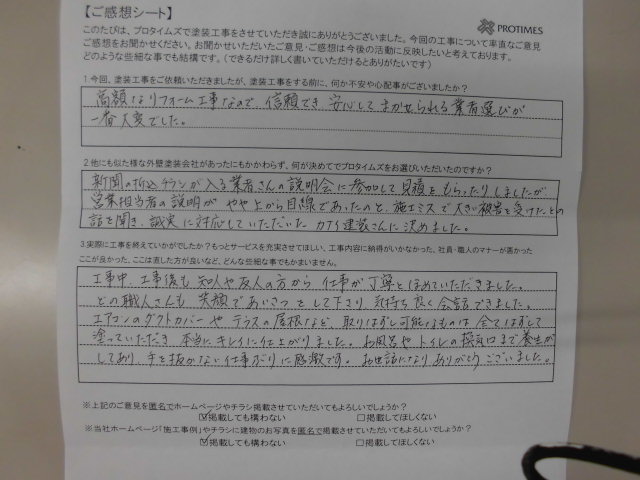 【ご感想シート】
PROTIMES
このたびは、プロタイムズで塗装工事をさせていただき誠にありがとうございました。今回の工事について率直なご意見
ご感想をお聞かせください。お聞かせいただいたご意見・ご感想は今後の活動に反映したいと考えております。
どのような些細な事でも結構です。（できるだけ詳しく書いていただけるとありがたいです）
1.今回、塗装工事をご依頼いただきましたが、塗装工事をする前に、何か不安や心配事がございましたか？
高額なリフォーム工事なので、信頼でき 安心して まかせられる業者選びが
一番大変でした。
2.他にも似た様な外壁塗装会社があったにもかかわらず、何が決めてでプロタイムズをお選びいただいたのですか？
新聞の折込チラシが入る業者さんの説明会に参加して見積をもらったりしましたが
営業担当者の説明が やや上から目線であったのと、施工ミスで大きい被害を受けたとの
話を聞き、誠実に対応していただいた カナイ建装さんに決めました。
3.実際に工事を終えていかがでしたか？もっとサービスを充実させてほしい、工事内容に納得がいかなかった、社員・職人のマナーが悪かった
ここが良かった、ここは直した方が良いなど、どんな些細な事でもかまいません。
工事中、工事後も 知人や友人の方から 仕事が丁寧とほめていただきました。
どの職人さんも 笑顔であいさつをして下さり 気持ち良く会話できました。
エアコンのダクトカバーや テラスの屋根など 取りはずし可能なものは 全てはずして
塗っていただき 本当にキレイに仕上がりました。お風呂やトイレの換気口まで養生が
してあり、手を抜かない仕事ぶりに感激です。お世話になり ありがとうございました。
※上記のご意見を匿名でホームページやチラシ掲載させていただいてもよろしいでしょうか？
☑掲載しても構わない □掲載してほしくない
※当社ホームページ「施工事例」やチラシに建物のお写真を匿名で掲載させていただいてもよろしいでしょうか？
☑掲載しても構わない □掲載してほしくない